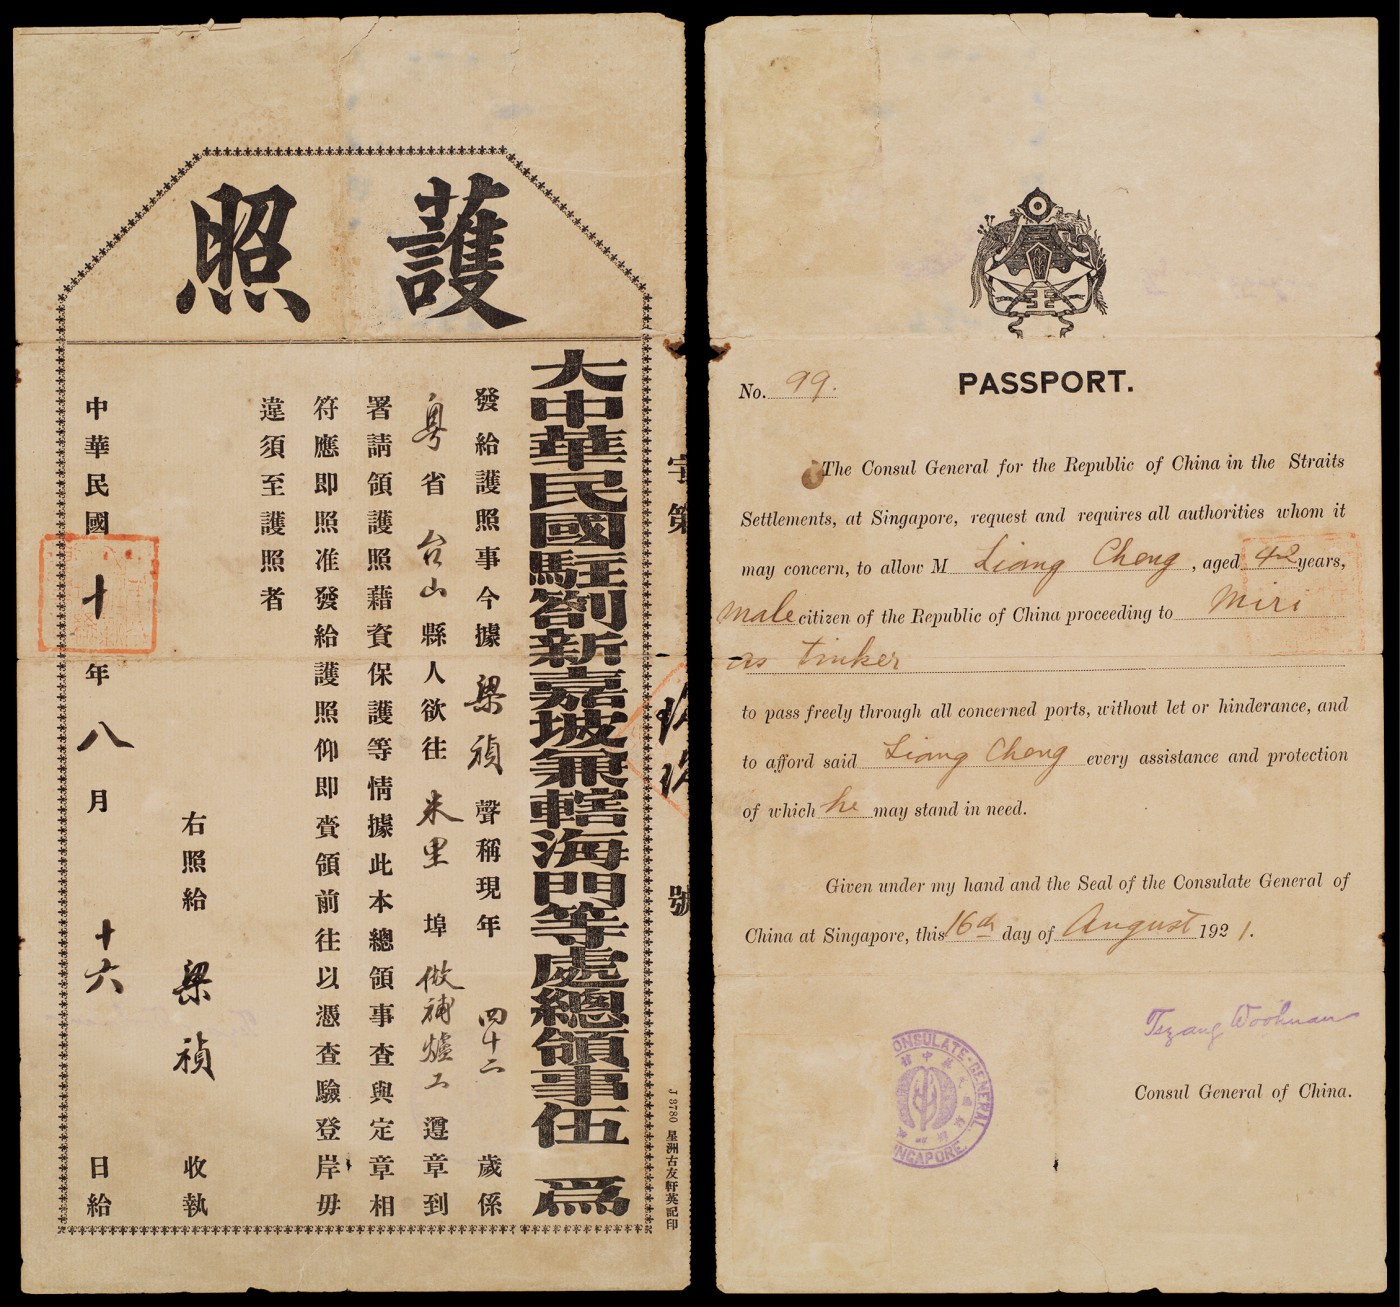 護照
大中華民國駐劄新嘉坡兼轄海門等處總領事伍 爲
發給護照事今據梁禎聲稱現年四十二歲係
粵省台山縣人欲往米里埠做補爐工遵章到
署請領護照藉資保護等情據此本總領事查與定章相
符應即照准發給護照仰即賫領前往以憑查驗登岸毋
違須至護照者
右照給 梁禎 收執
中華民國十年八月十六日給
字第玖玖號
J 3780 星洲古友軒英記印
PASSPORT.
No. 99.
The Consul General for the Republic of China in the Straits
Settlements, at Singapore, request and requires all authorities whom it
may concern, to allow M Liang Cheng, aged 42 years,
male citizen of the Republic of China proceeding to Miri
as tinker
to pass freely through all concerned ports, without let or hinderance, and
to afford said Liang Cheng every assistance and protection
of which he may stand in need.
Given under my hand and the Seal of the Consulate General of
China at Singapore, this 16th day of August 1921.
Tszang Woohuan
Consul General of China.
CONSULATE-GENERAL
SINGAPORE.